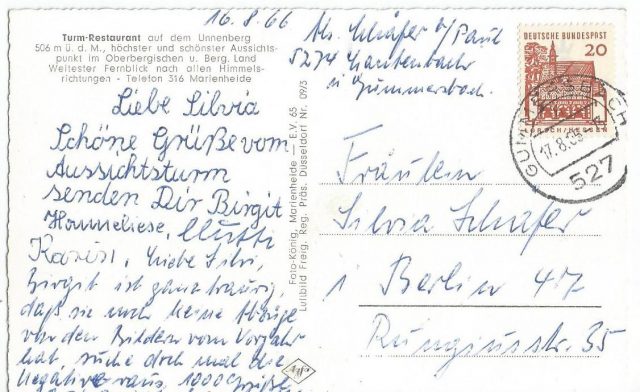 16.8.66
Abs. Schäfer b/ Paul
5274 Lantenbach
ü Gummersbach.
Turm-Restaurant auf dem Unnenberg
506 m ü. d. M., höchster und schönster Aussichts-
punkt im Oberbergischen u. Berg. Land
Weitester Fernblick nach allen Himmels-
richtungen - Telefon 316 Marienheide
Liebe Silvia
Schöne Grüße vom
Aussichtsturm
senden Dir Birgit
Hanneliese, Mutti
Karin. Liebe Silvi,
Birgit ist ganz traurig,
daß sie noch keine Abzüge
von den Bildern vom Vorjahr
hat, suche doch mal die
Negative raus, 1000 Grüße
Foto-König, Marienheide — B.V. 65
Luftbild Freig. Reg. Präs. Düsseldorf Nr. 09/3
DEUTSCHE BUNDESPOST
20
LORSCH/HESSEN
GUMMERSBACH
17.8.66
527
Fräulein
Silvia Schäfer
1 Berlin 47
Rungiusstr. 35